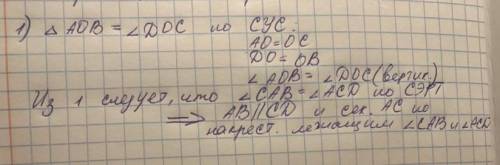 1) △ AOB = ∠DOC по СУС.
AO=OC
DO=OB
∠AOB = ∠DOC (вертик.)
Из 1 следует, что ∠CAB = ∠ACD по СЭРТ
⟹ AB∥CD и сек. AC по
накрест. лежащим ∠CAB и ∠ACD